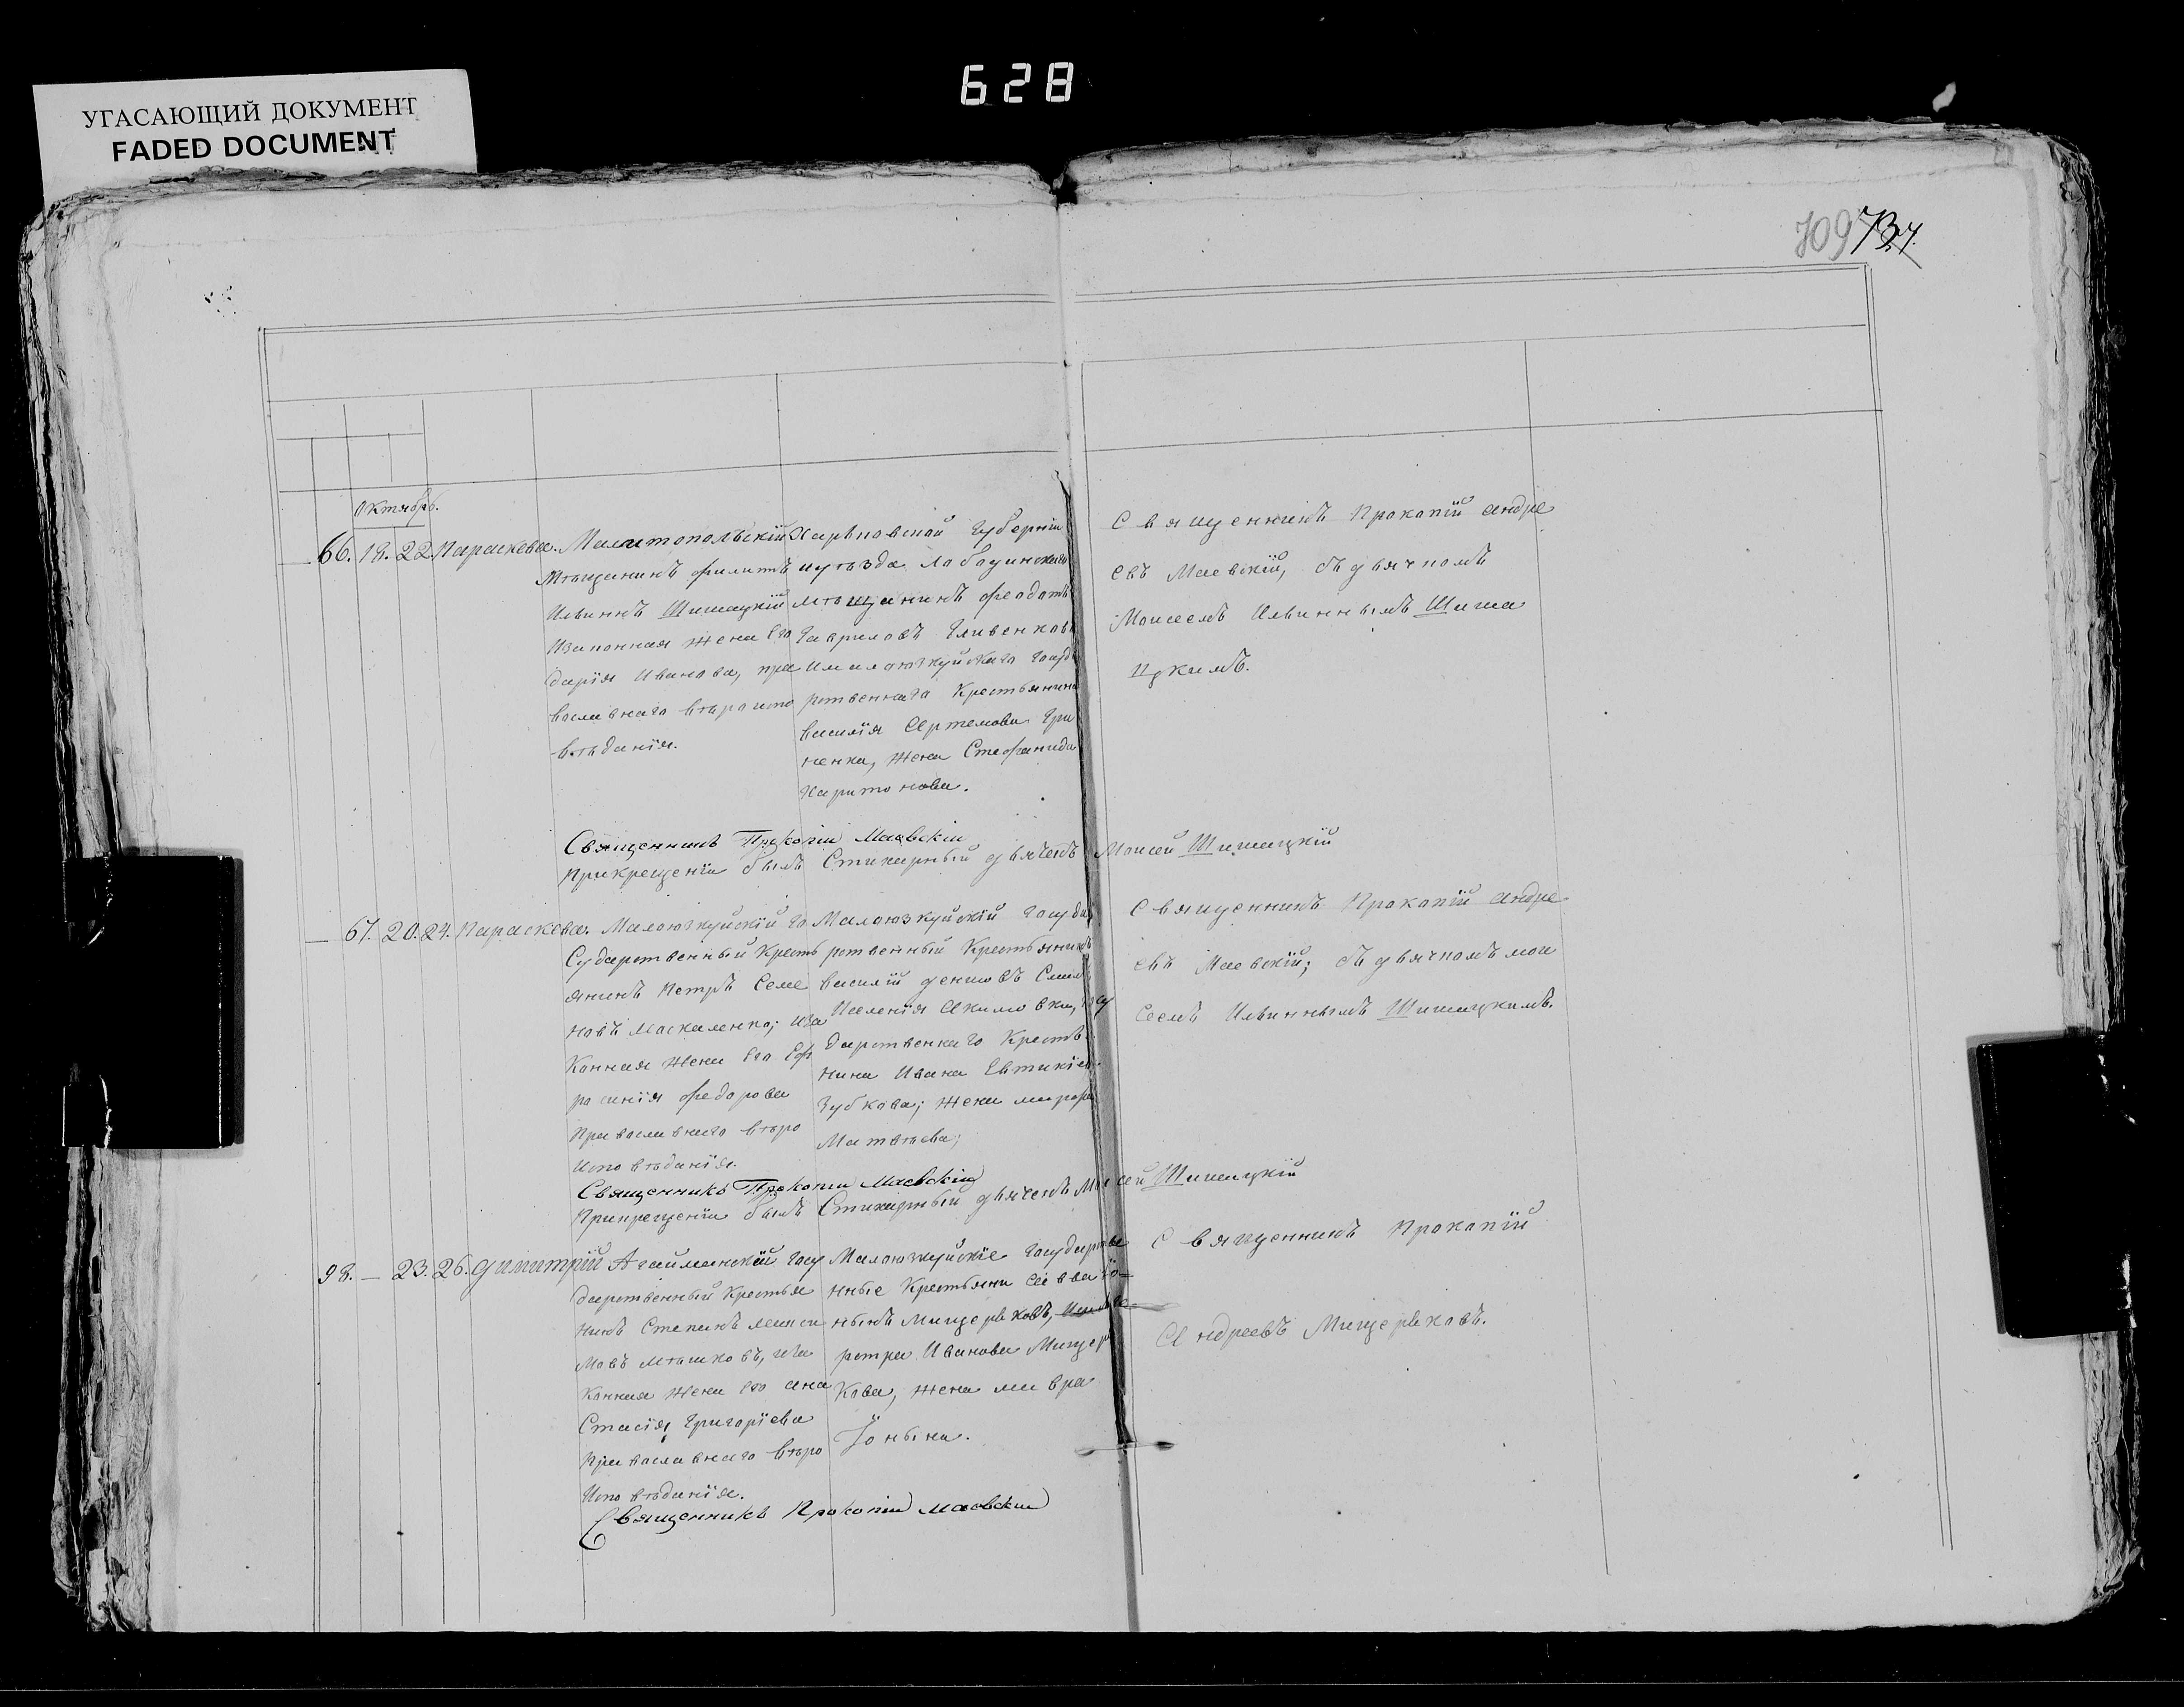 628
УГАСАЮЩИЙ ДОКУМЕНТ
FADED DOCUMENT
709 737.
Октябрь.
66. 18. 22. Параскева.
Мелитопольскій
мѣщанинъ Филипъ
Ильинъ Шишацкій
Изаконная жена Его
Дарія Иванова, пра
вославнаго вѣроиспо
вѣданія.
Харьковской Губерніи
иуѣзда Лабодинскаго
мѣщанинъ Феодотъ
Гавриловъ Гливенковъ
Ималоютлуйскаго Госуд
рственнаго Крестьянина
василія Артемова Гри
ненка, жена Стефанида
Харитонова.
Священникъ Прокапій Андре
евъ Маевскій, съ дьячкомъ
Моисеемъ Ильиннымъ Шиша
цкимъ.
Священникъ Прокопій Маевскій
Прикрещеніи былъ Стихарный дьячекъ Моисей Шишацкій
67. 20. 24. Параскева.
Малоютлуйскій Го
Сударственный Кресть
янинъ Петръ Семе
новъ Москаленко; иза
Конная жена Его Еф
росинія Федорова
Православнаго вѣро
Исповѣданія.
Малоютлуйскій Госуда
рственный Крестьянинъ
василій денисовъ
Иселенія Акимовки, Госу
дарственнаго Кресть
нина Ивана Евтихіев
Зубкова; жена марфа
Матвѣева;
Священникъ Прокапій Андре
евъ Маевскій; съ дьячкомъ мои
Сеемъ Ильиннымъ Шишацкимъ.
Священникъ Прокопій Маевскій
Прикрещеніи былъ Стихарный дьячекъ Моисей Шишацкій
98. — 23. 26. Димитрій
Агайманскій Госу
дарственный Крестья
нинъ Степанъ макси
мовъ мѣшковъ, иза
конная жена Его ана
Стасія Григоріева
Православнаго вѣро
Исповѣданія.
Малоютлуйскіе Государстве
нные Крестьяни Савва Iо
нынъ Мищеряковъ,
Петра Иванова Мищеря
Кова, жена мавра
Iонына.
Священникъ Прокапій
Андреевъ Мищеряковъ.
Священникъ Прокопій Маевскій